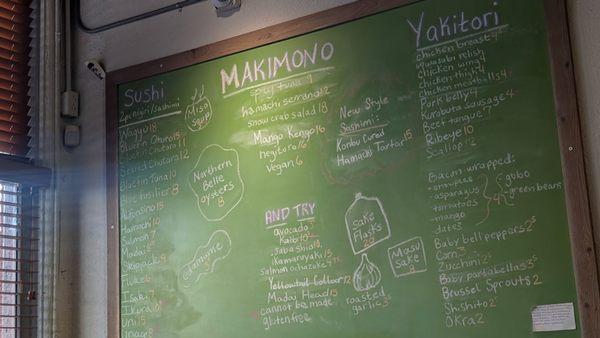 Sushi
2pc nigiri/sashimi
Wagyu 18
Bluefin Otoro
Bluefin Chutoro
Seared Chutoro 12
Bluefin Tuna 10
Alfonsino 15
Hamachi 10
Salmon 7
Madai 8
Ikura 10
Uni 15
Unagi 8
Miso
soup
Northern
Belle
oysters
8
edamame
MAKIMONO
spicy tuna 9
hamachi serrano 12
snow crab salad 18
Mango Kengo 16
negitoro 16
vegan 6
New Style
Sashimi:
Konbu Cured
Hamachi Tartar 15
AND TRY
avocado
Kaibi 10
saba shio 10
ikamaruyaki 15
salmon ochazuke
Yellowtail Collar 12
Madai Head 15
cannot be made
gluten free
sake
Flasks
20
Masu
Sake
8
roasted
garlic 3
Yakitori
chicken breast 4
chicken wing 4
chicken thigh
chicken meatballs 4
Pork belly 4
Kurobuta sausage 4
Beef tongue 7
Ribeye 10
Scallop 12
Bacon wrapped:
-asparagus
-tomatoes
-mango
-dates
gobo
green beans
Baby bell peppers 2
Corn
Zucchini 2
Baby portabellas 3
Brussel Sprouts 2
Shishito 2
Okra 2